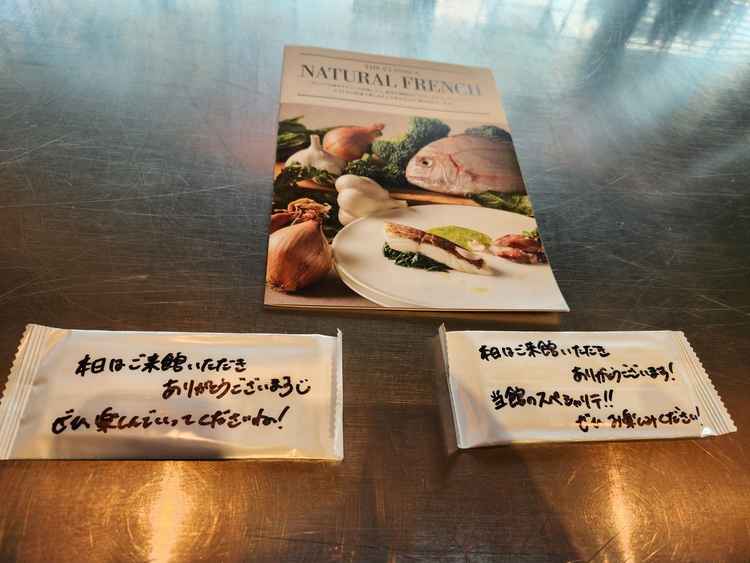 NATURAL FRENCH
本日はご来館いただき
ありがとうございまろじ
ぜひ楽しんでいってくださいね!
本日はご来館いただき
ありがとうございます!
当館のスペシャリテ!!
ぜひお楽しみください!